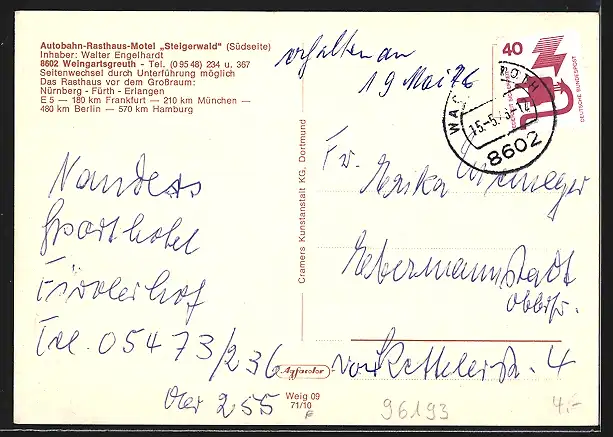 Autobahn-Rasthaus-Motel „Steigerwald" (Südseite)
Inhaber: Walter Engelhardt
8602 Weingartsgreuth - Tel. (0 95 48) 234 u. 367
Seitenwechsel durch Unterführung möglich
Das Rasthaus vor dem Großraum:
Nürnberg - Fürth - Erlangen
E 5 — 180 km Frankfurt — 210 km München —
480 km Berlin — 570 km Hamburg
erhalten am
19 Mai 76
40
DEUTSCHE BUNDESPOST
15.-5.76-12
8602
Sporthotel
Tel. 05473/236
oder 255
Cramers Kunstanstalt KG, Dortmund
Fr.
Erika
Ebermannstadt
von Kettelerstr. 4
Agfacolor
Weig 09
71/10
96193
4,-